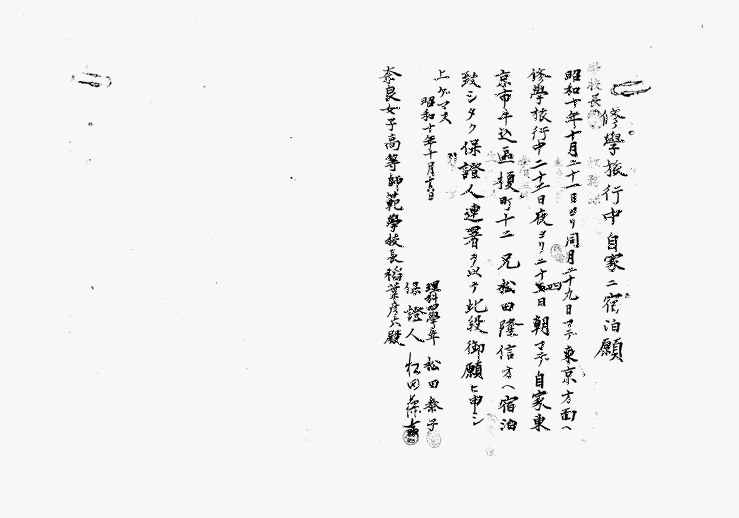 修學旅行中自家ニ宿泊願
昭和十年十月二十一日ヨリ同月二十九日マデ東京方面ヘ
修學旅行中二十三日夜ヨリ二十四日朝マデ自家東
京市牛込區榎町十二 兄松田隆信方ヘ宿泊
致シタク保證人連署ヲ以テ此段御願ヒ申シ
上ゲマス
昭和十年十月 日
理科四學年 松田泰子
保證人 松田
奈良女子高等師範學校長稻葉彦六殿
學校長